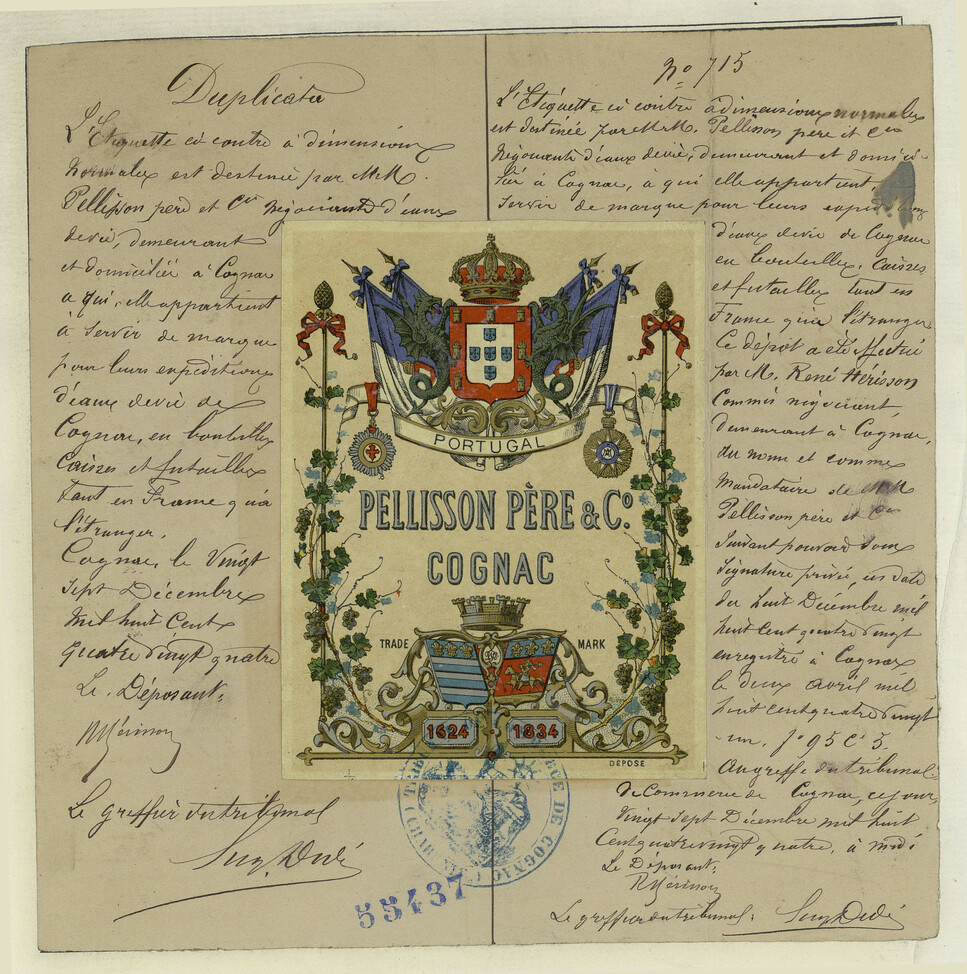 Duplicata
L'Etiquette ci contre à dimensions
normales est destinée par MM.
Pellisson père et Cie négociants d'eaux
de vie, demeurant
et domiciliés à Cognac
à qui elle appartient
à servir de marque
pour leurs expéditions
d'eaux de vie de
Cognac, en bouteilles
Caisses et futailles
tant en France qu'à
l'étranger.
Cognac, le Vingt
sept Décembre
Mil huit Cent
quatre vingt quatre
Le Déposant,
RHérisson
Le greffier du tribunal
No 715
L'Etiquette ci contre à dimensions normales
est destinée par MM. Pellisson père et Cie
Négociants d'eaux de vie, demeurant et domici-
liés à Cognac, à qui elle appartient,
Servir de marque pour leurs expéditions
d'eaux de vie de Cognac
en bouteilles, caisses
et futailles tant en
France qu'à l'étranger
Ce dépôt a été effectué
par M. René Hérisson
Commis négociant,
demeurant à Cognac,
au nom et comme
Mandataire de MM
Pellisson père et Cie
Suivant pouvoir sous
signature privée, en date
du huit Décembre mil
huit cent quatre vingt
enregistré à Cognac
le deux avril mil
huit cent quatre vingt
-un. fo 95 Co 5.
Au greffe du tribunal
de Commerce de Cognac, ce jour,
Vingt sept Décembre mil huit
Cent quatre vingt quatre, à midi
Le Déposant,
RHérisson
Le greffier du tribunal,
PORTUGAL
PELLISSON PÈRE & Co.
COGNAC
TRADE MARK
1624 1834
DÉPOSÉ
DE COGNAC
55437